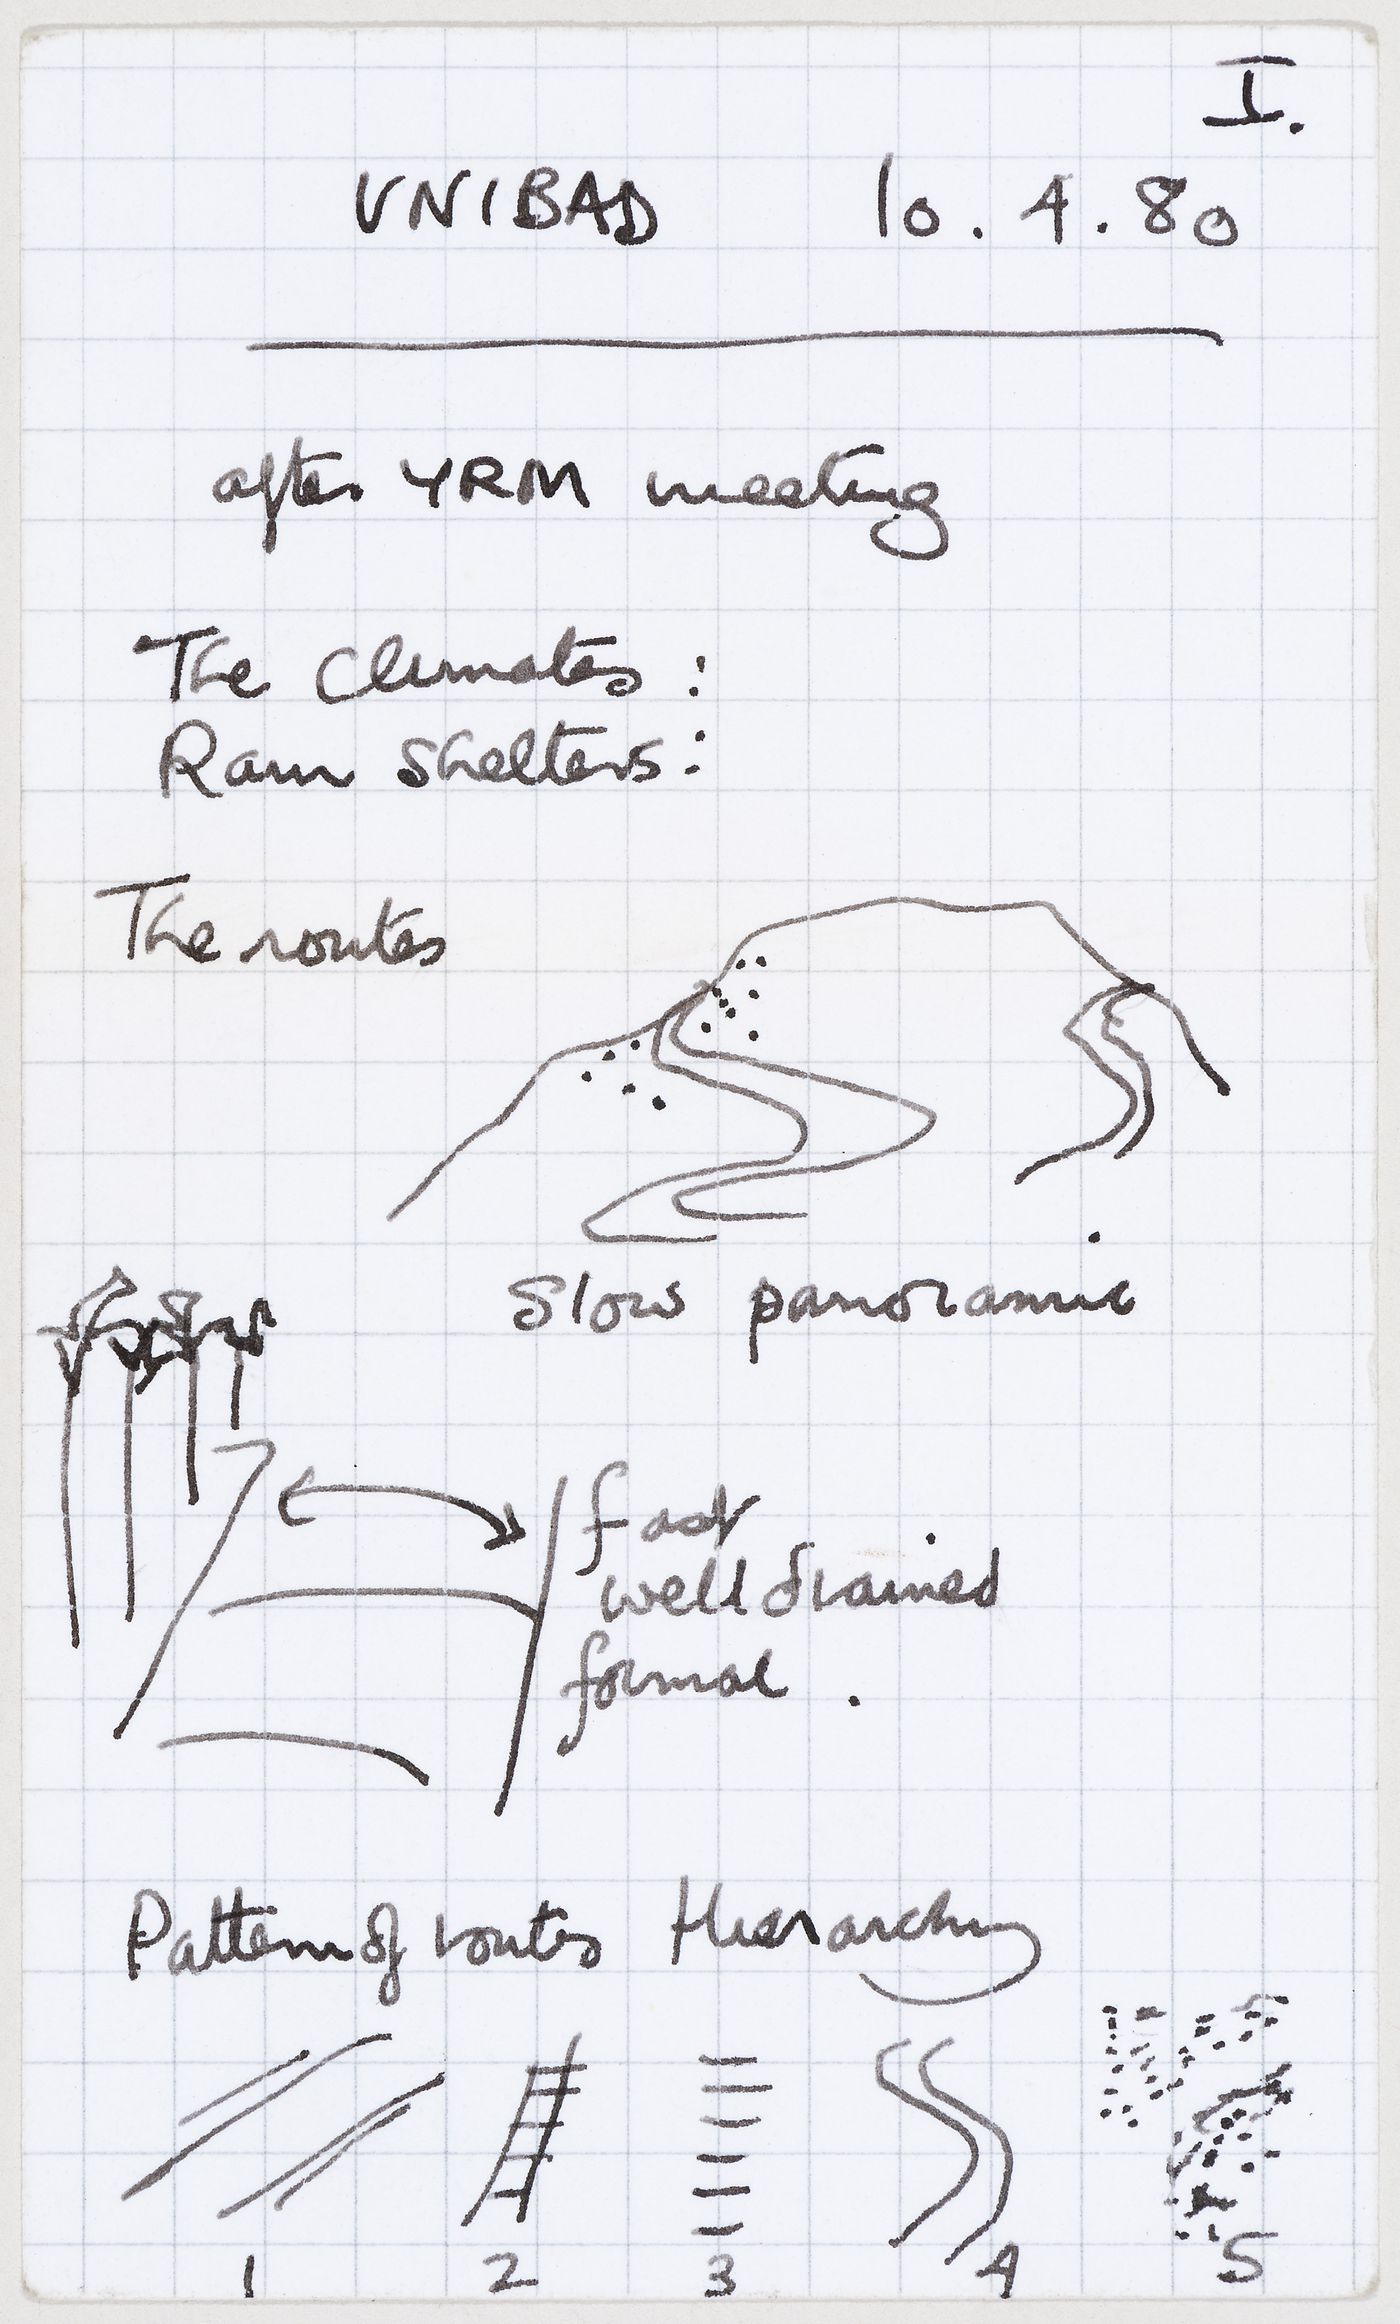 I.
UNIBAD 10.4.80
after YRM meeting
The Climates:
Rain shelters:
The routes
Slow panoramic
fast
well drained
formal.
Pattern of routes Hierarchy
1 2 3 4 5